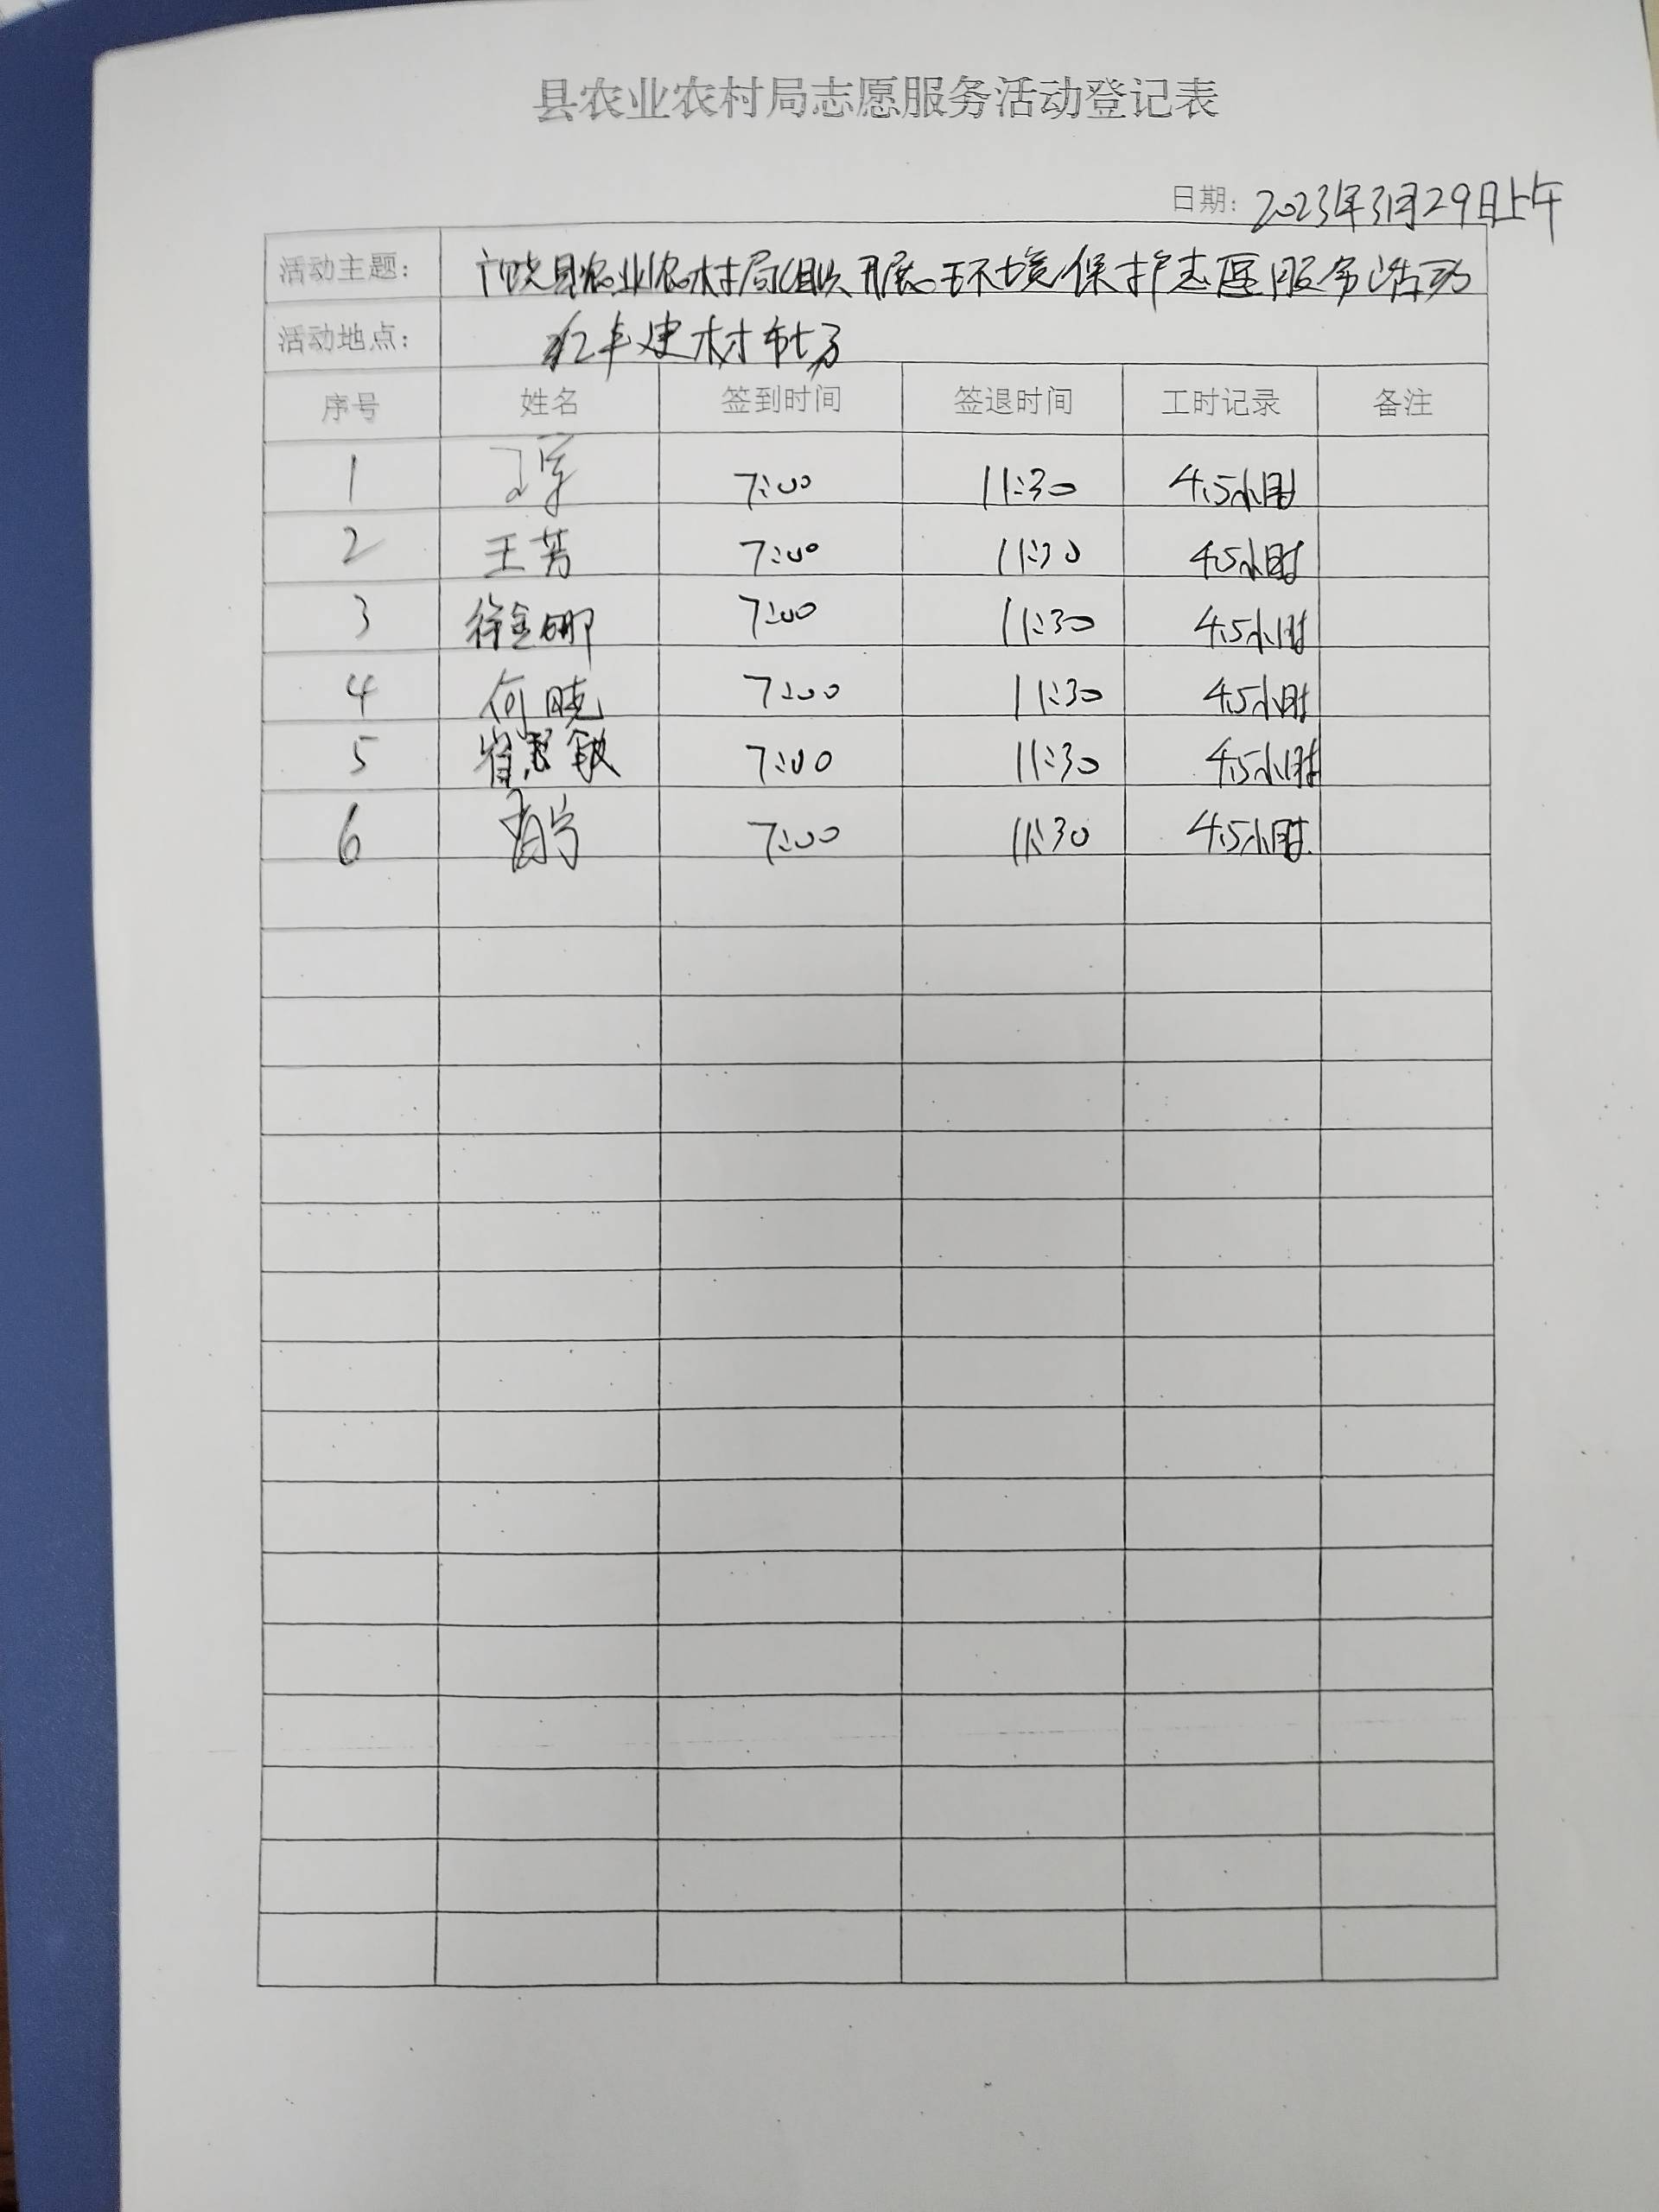 县农业农村局志愿服务活动登记表
日期: 2023年3月29日上午
活动主题: 县农业农村局组织开展环境保护志愿服务活动
活动地点: 建材市场
序号 姓名 签到时间 签退时间 工时记录 备注
1 7:00 11:30 4.5小时
2 王芳 7:00 11:30 4.5小时
3 徐金娜 7:00 11:30 4.5小时
4 何晓 7:00 11:30 4.5小时
5 敏 7:00 11:30 4.5小时
6 7:00 11:30 4.5小时